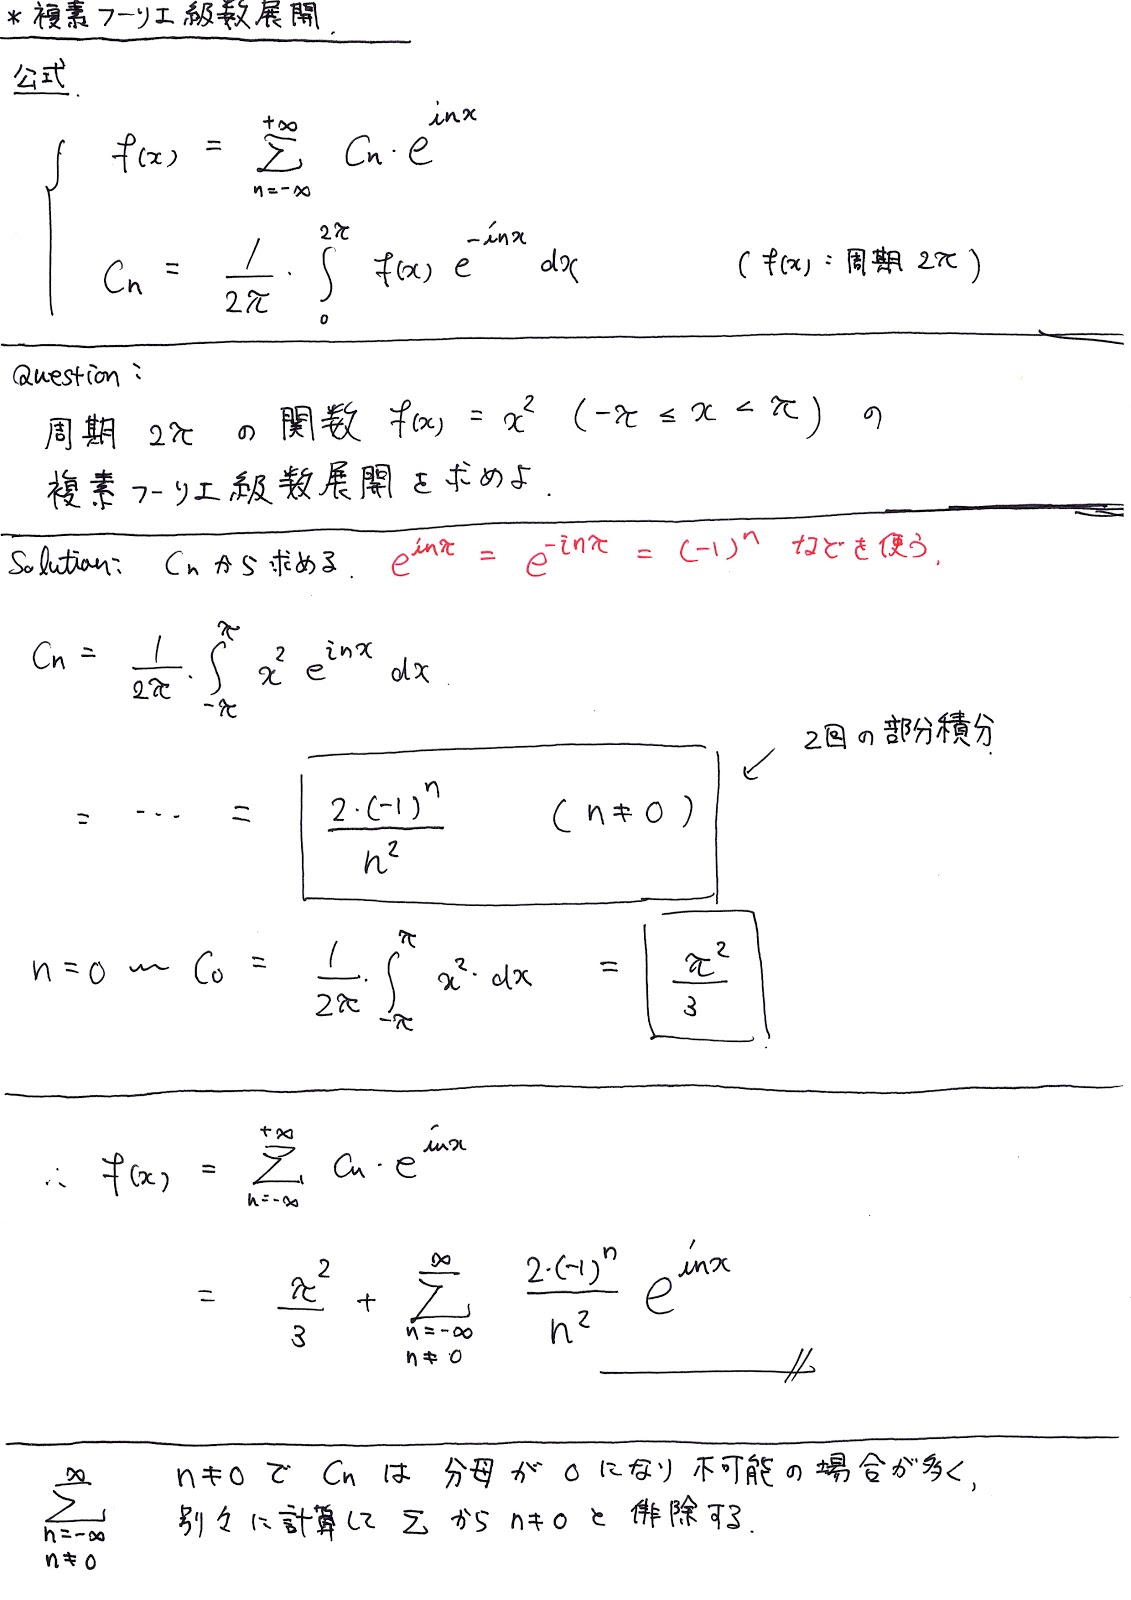 * 複素フーリエ級数展開.
公式.
f(x) = Σ_{n=-∞}^{+∞} Cn・e^{inx}
Cn = 1/2π・∫_0^{2π} f(x) e^{-inx} dx (f(x) : 周期 2π)
Question :
周期 2π の 関数 f(x) = x² (-π ≤ x < π) の
複素フーリエ級数展開を求めよ.
Solution : Cn から求める. e^{inπ} = e^{-inπ} = (-1)^n などを使う.
Cn = 1/2π・∫_{-π}^{π} x² e^{inx} dx.
2回の部分積分
= … = 2・(-1)^n / n² (n≠0)
n=0 〜 C0 = 1/2π・∫_{-π}^{π} x²・dx = π²/3
∴ f(x) = Σ_{n=-∞}^{+∞} Cn・e^{inx}
= π²/3 + Σ_{n=-∞, n≠0}^{∞} 2・(-1)^n / n² e^{inx}
Σ_{n=-∞, n≠0}^{∞} n≠0 で Cn は 分母が 0 になり不可能の場合が多く,
別々に計算して Σ から n≠0 と 排除する.